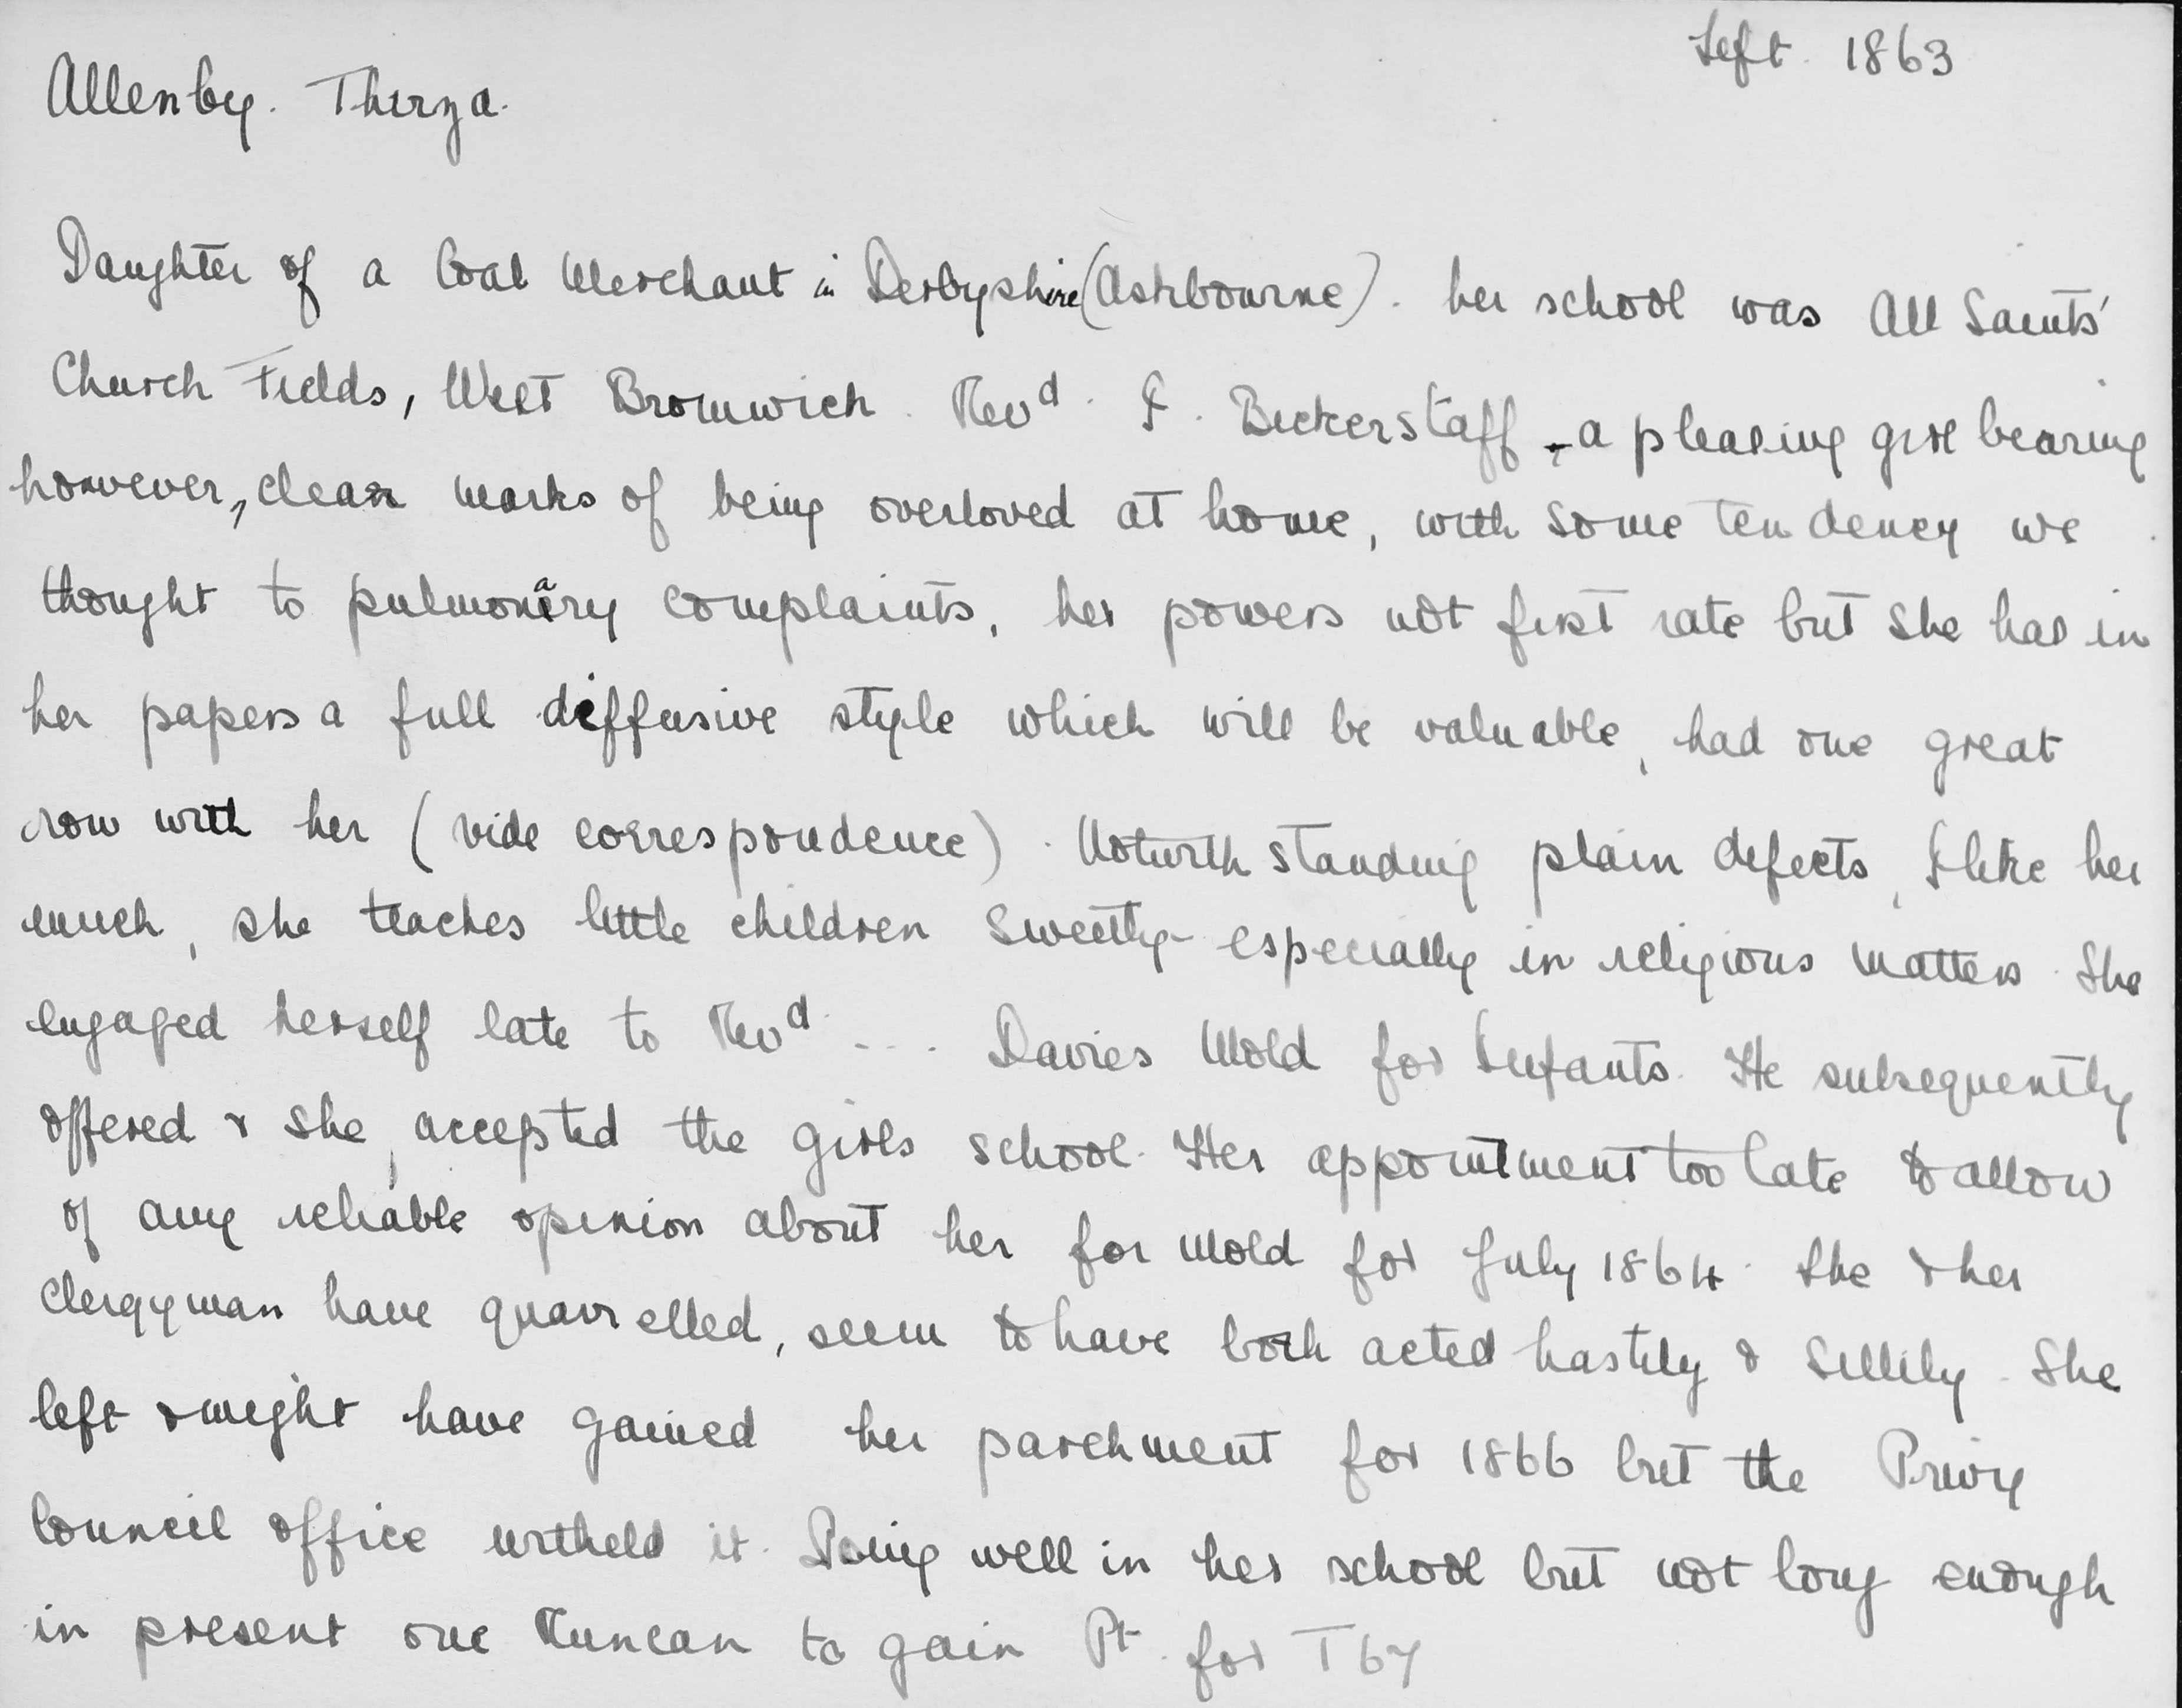 Left. 1863
Allenby. Thirza.
Daughter of a Coal Merchant in Derbyshire (Ashbourne). her school was All Saints'
Church Fields, West Bromwich. Revd. F. Bickerstaff - a pleasing girl bearing
however, clear marks of being overloved at home, with some tendency we
thought to pulmonary complaints, her powers not first rate but she has in
her papers a full diffusive style which will be valuable, had one great
row with her (vide correspondence). Notwithstanding plain defects, I like her
much, she teaches little children sweetly - especially in religious matters. She
engaged herself late to Revd. ... Davies Mold for Infants. He subsequently
offered & she, accepted the girls school. Her appointment too late to allow
of any reliable opinion about her for Mold for July 1864. She & her
Clergyman have quarrelled, seem to have both acted hastily & sillily. She
left & might have gained her parchment for 1866 but the Privy
Council Office witheld it. Doing well in her school but not long enough
in present one to gain Pt. for